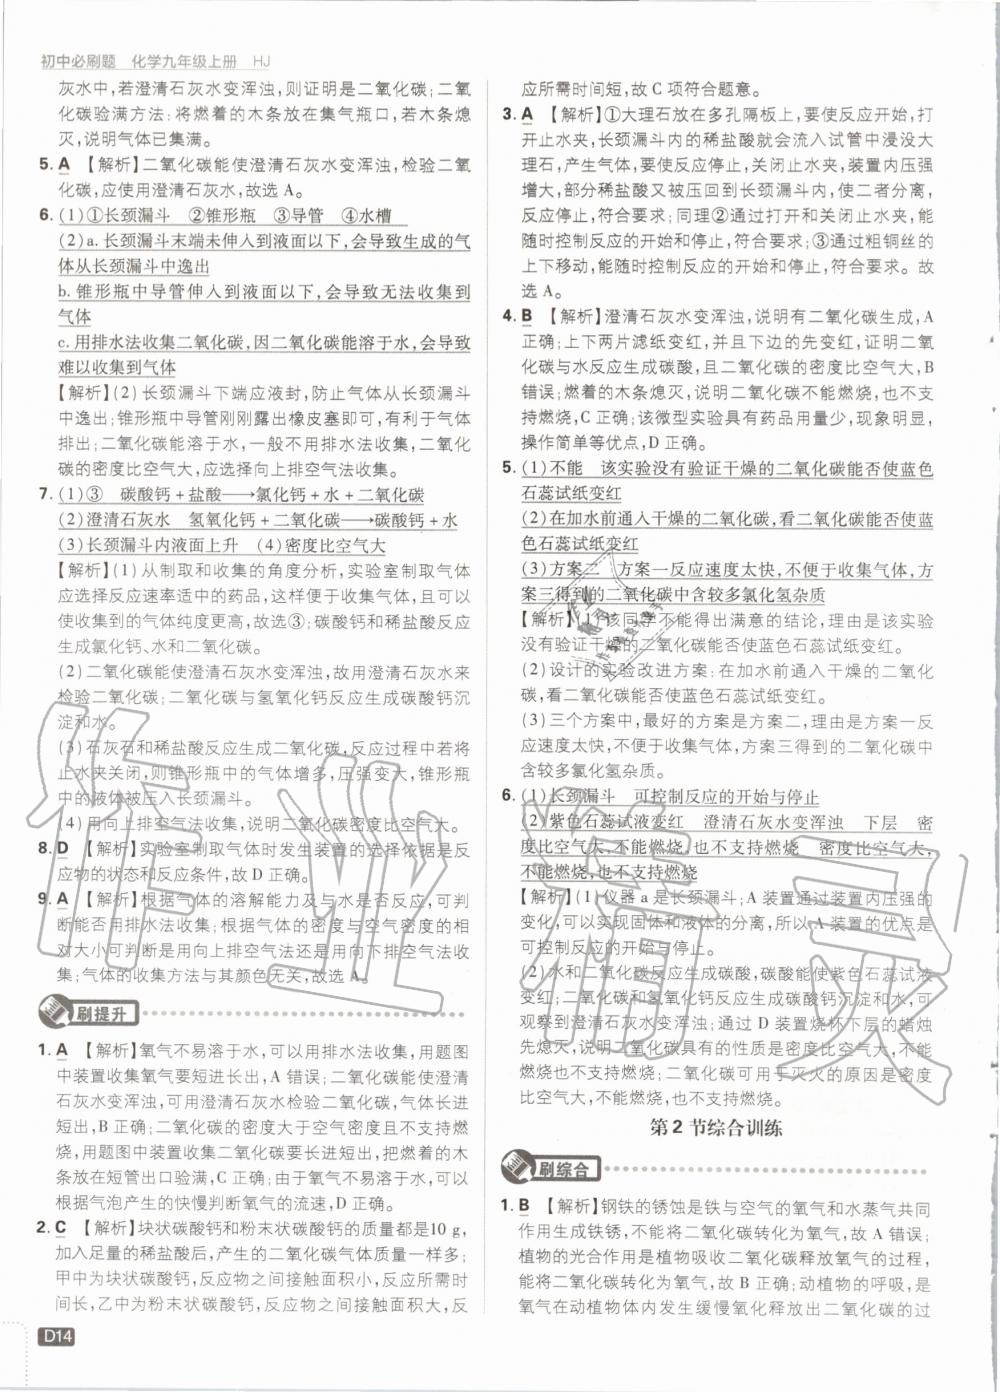 初中必刷题 化学九年级上册 HJ
灰水中,若澄清石灰水变浑浊,则证明是二氧化碳;二氧
化碳验满方法:将燃着的木条放在集气瓶口,若木条熄
灭,说明气体已集满。
5. A 【解析】二氧化碳能使澄清石灰水变浑浊,检验二氧
化碳,应使用澄清石灰水,故选A。
6. (1)①长颈漏斗 ②锥形瓶 ③导管 ④水槽
(2)a.长颈漏斗末端未伸入到液面以下,会导致生成的气
体从长颈漏斗中逸出
b.锥形瓶中导管伸入到液面以下,会导致无法收集到
气体
c.用排水法收集二氧化碳,因二氧化碳能溶于水,会导致
难以收集到气体
【解析】(2)长颈漏斗下端应液封,防止气体从长颈漏斗
中逸出;锥形瓶中导管刚刚露出橡皮塞即可,有利于气体
排出;二氧化碳能溶于水,一般不用排水法收集,二氧化
碳的密度比空气大,应选择向上排空气法收集。
7. (1)③ 碳酸钙+盐酸⟶氯化钙+水+二氧化碳
(2)澄清石灰水 氢氧化钙+二氧化碳⟶碳酸钙+水
(3)长颈漏斗内液面上升 (4)密度比空气大
【解析】(1)从制取和收集的角度分析,实验室制取气体
应选择反应速率适中的药品,这样便于收集气体,且可以
使收集到的气体纯度更高,故选③;碳酸钙和稀盐酸反应
生成氯化钙、水和二氧化碳。
(2)二氧化碳能使澄清石灰水变浑浊,故用澄清石灰水来
检验二氧化碳;二氧化碳与氢氧化钙反应生成碳酸钙沉
淀和水。
(3)石灰石和稀盐酸反应生成二氧化碳,反应过程中若将
止水夹关闭,则锥形瓶中的气体增多,压强变大,锥形瓶
中的液体被压入长颈漏斗。
(4)用向上排空气法收集,说明二氧化碳密度比空气大。
8. D 【解析】实验室制取气体时发生装置的选择依据是反
应物的状态和反应条件,故D正确。
9. A 【解析】根据气体的溶解能力及与水是否反应,可判
断能否用排水法收集;根据气体的密度与空气密度的相
对大小可判断是用向上排空气法还是用向下排空气法收
集;气体的收集方法与其颜色无关,故选A。
刷提升
1. A 【解析】氧气不易溶于水,可以用排水法收集,用题图
中装置收集氧气要短进长出,A错误;二氧化碳能使澄清
石灰水变浑浊,可用澄清石灰水检验二氧化碳,气体长进
短出,B正确;二氧化碳的密度大于空气且不支持燃
烧,用题图中装置收集二氧化碳要长进短出,把燃着的木
条放在短管出口验满,C正确;由于氧气不易溶于水,可以
根据气泡产生的快慢判断氧气的流速,D正确。
2. C 【解析】块状碳酸钙和粉末状碳酸钙的质量都是10 g,
加入足量的稀盐酸后,产生的二氧化碳气体质量一样多;
甲中为块状碳酸钙,反应物之间接触面积小,反应所需时
间长,乙中为粉末状碳酸钙,反应物之间接触面积大,反
D14
应所需时间短,故C项符合题意。
3. A 【解析】①大理石放在多孔隔板上,要使反应开始,打
开止水夹,长颈漏斗内的稀盐酸就会流入试管中浸没大
理石,产生气体,要使反应停止,关闭止水夹,装置内压强
增大,部分稀盐酸又被压回到长颈漏斗内,使二者分离,
反应停止,符合要求;同理②通过打开和关闭止水夹,能
随时控制反应的开始和停止,符合要求;③通过粗铜丝的
上下移动,能随时控制反应的开始和停止,符合要求。故
选A。
4. B 【解析】澄清石灰水变浑浊,说明有二氧化碳生成,A
正确;上下两片滤纸变红,并且下边的先变红,证明二氧
化碳与水反应生成碳酸,且二氧化碳的密度比空气大,B
错误;燃着的木条熄灭,说明二氧化碳不能燃烧,也不支
持燃烧,C正确;该微型实验具有药品用量少,现象明显,
操作简单等优点,D正确。
5. (1)不能 该实验没有验证干燥的二氧化碳能否使蓝色
石蕊试纸变红
(2)在加水前通入干燥的二氧化碳,看二氧化碳能否使蓝
色石蕊试纸变红
(3)方案二 方案一反应速度太快,不便于收集气体,方
案三得到的二氧化碳中含较多氯化氢杂质
【解析】(1)该同学不能得出满意的结论,理由是该实验
没有验证干燥的二氧化碳能否使蓝色石蕊试纸变红。
(2)设计的实验改进方案:在加水前通入干燥的二氧化
碳,看二氧化碳能否使蓝色石蕊试纸变红。
(3)三个方案中,最好的方案是方案二,理由是方案一反
应速度太快,不便于收集气体,方案三得到的二氧化碳中
含较多氯化氢杂质。
6. (1)长颈漏斗 可控制反应的开始与停止
(2)紫色石蕊试液变红 澄清石灰水变浑浊 下层 密
度比空气大,不能燃烧,也不支持燃烧 密度比空气大,
不能燃烧,也不支持燃烧
【解析】(1)仪器a是长颈漏斗;A装置通过装置内压强的
变化,可以实现固体和液体的分离,所以A装置的优点是
可控制反应的开始与停止。
(2)水和二氧化碳反应生成碳酸,碳酸能使紫色石蕊试液
变红;二氧化碳和氢氧化钙反应生成碳酸钙沉淀和水,可
观察到澄清石灰水变浑浊;通过D装置烧杯下层的蜡烛
先熄灭,说明二氧化碳具有的性质是密度比空气大,不能
燃烧也不支持燃烧;二氧化碳可用于灭火的原因是密度
比空气大,不能燃烧,也不支持燃烧。
第2节综合训练
刷综合
1. B 【解析】钢铁的锈蚀是铁与空气的氧气和水蒸气共同
作用生成铁锈,不能将二氧化碳转化为氧气,故A错误;
植物的光合作用是植物吸收二氧化碳释放氧气的过程,
能将二氧化碳转化为氧气,故B正确;动植物的呼吸,是
氧气在动植物体内发生缓慢氧化释放出二氧化碳的过
作业精灵